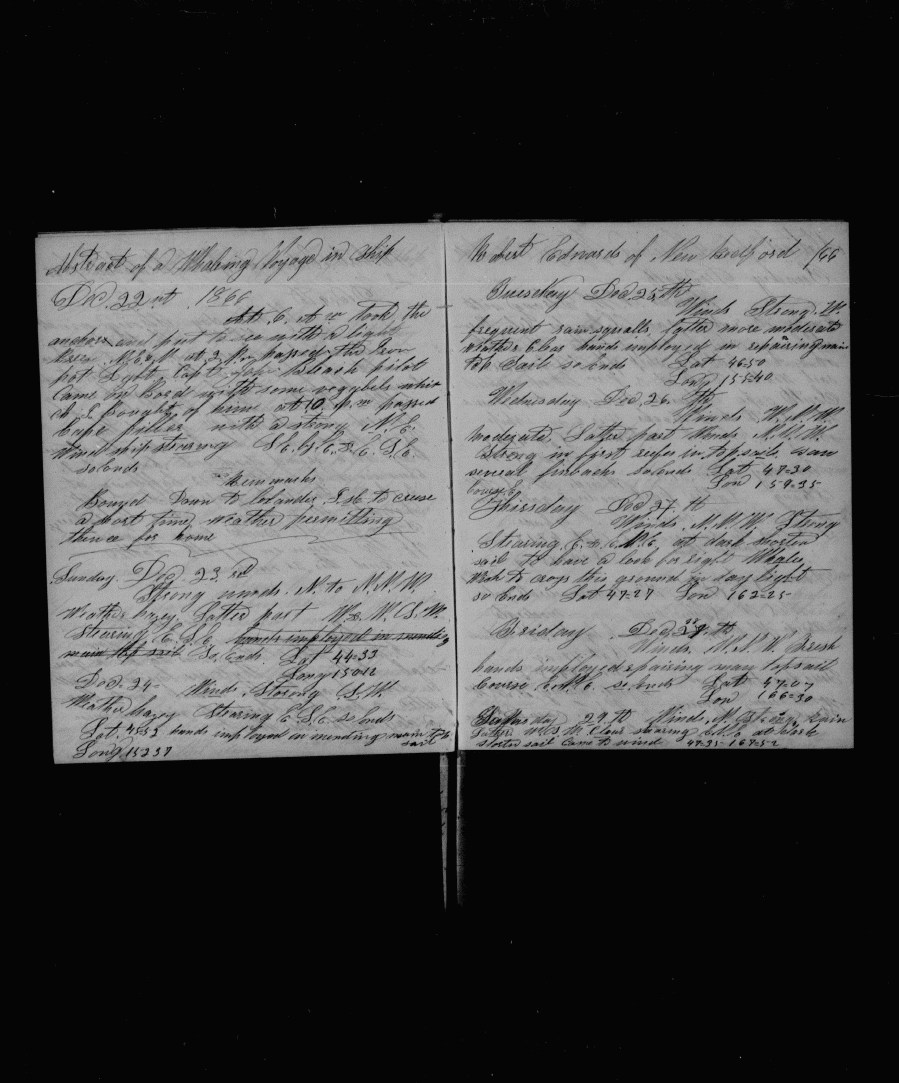 Abstract of a Whaling Voyage in Ship
Dec. 22 nt 1866
At 6. at m took the
anchor and put to sea with a light
at 3 P.m passed the
pot Light Capt pilot
Came on Board with some vegybels whic
ch I bought of him at 10. p. m passed
with a strong N. E.
wind ship stearing S. E. by E. & E. S. E.
so ends
Remmarks
Bound Down to to cruse
a short time weather permitting
thence for home
Sunday. Dec. 23. rd
Strong winds. N. to N. N. W.
Weather hazy Latter part W. & W. S. W.
Stearing E. S. E. hands employed in mending
main top sail So. Ends. Lat 44=33
Long 150
Dec. 24= Winds Strong S. W.
Weather hazy Stearing E. S. E. so ends
Lat. 4553 hands employed in mending main top
sail
Long 152 37
Robert Edwards of New bedford /66
Tuesday Dec. 25. th
Winds Strong W.
frequent rain squalls, latter more moderate
weather Clear hands employed in repairing main
top sail so Ends Lat 46=50
Long 155=40
Wednesday Dec. 26. th
Winds W. N. W.
moderate. Latter part Winds N. N. W.
Strong in first reefes in topsails. saw
several finbacks so Ends Lat 47=30
Lon 159=35
Course E.
Thirsday Dec 27. th
Winds. N. N. W. Strong
Stearing E. & E. N. E. at dark shorten
sail to have a look for right Whales
Wish to cross this ground in day light
so Ends Lat 47=27 Lon 162=25
Friday Dec. 28. th
Winds. N. N. W. Fresh
hands employed repairing main topsail
Course E. N. E. so ends Lat 47=07
Lon 166=30
Satterday 29. th Winds, N. Strong, rain
Latter W. N. W Clear stearing E. N. E. at dark
shorten sail Came to wind 47=35= 169=52